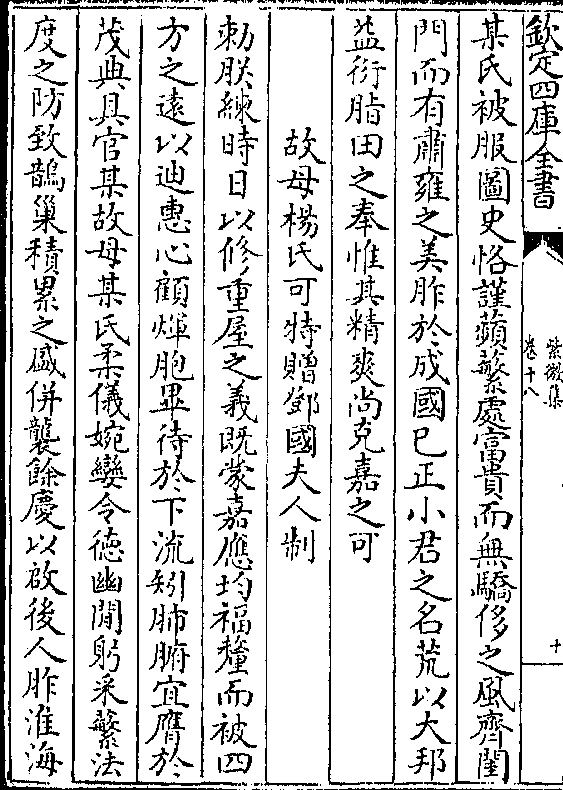 欽定四庫全書
紫微集
卷十八
十
某氏被服圖史恪謹蘋蘩處富貴而無驕侈之風齊閨
門而有肅雍之美胙於成國已正小君之名荒以大邦
益衍脂田之奉惟其精爽尚克嘉之可
故母楊氏可特贈鄧國夫人制
勅朕練時日以修重屋之義既蒙嘉應均福釐而被四
方之遠以迪惠心顧煇胞畢待於下流矧肺腑宜膺於
茂典具官某故母某氏柔儀婉孌令徳幽閒躬采蘩法
度之防致鵲巢積累之盛併襲餘慶以啟後人胙淮海